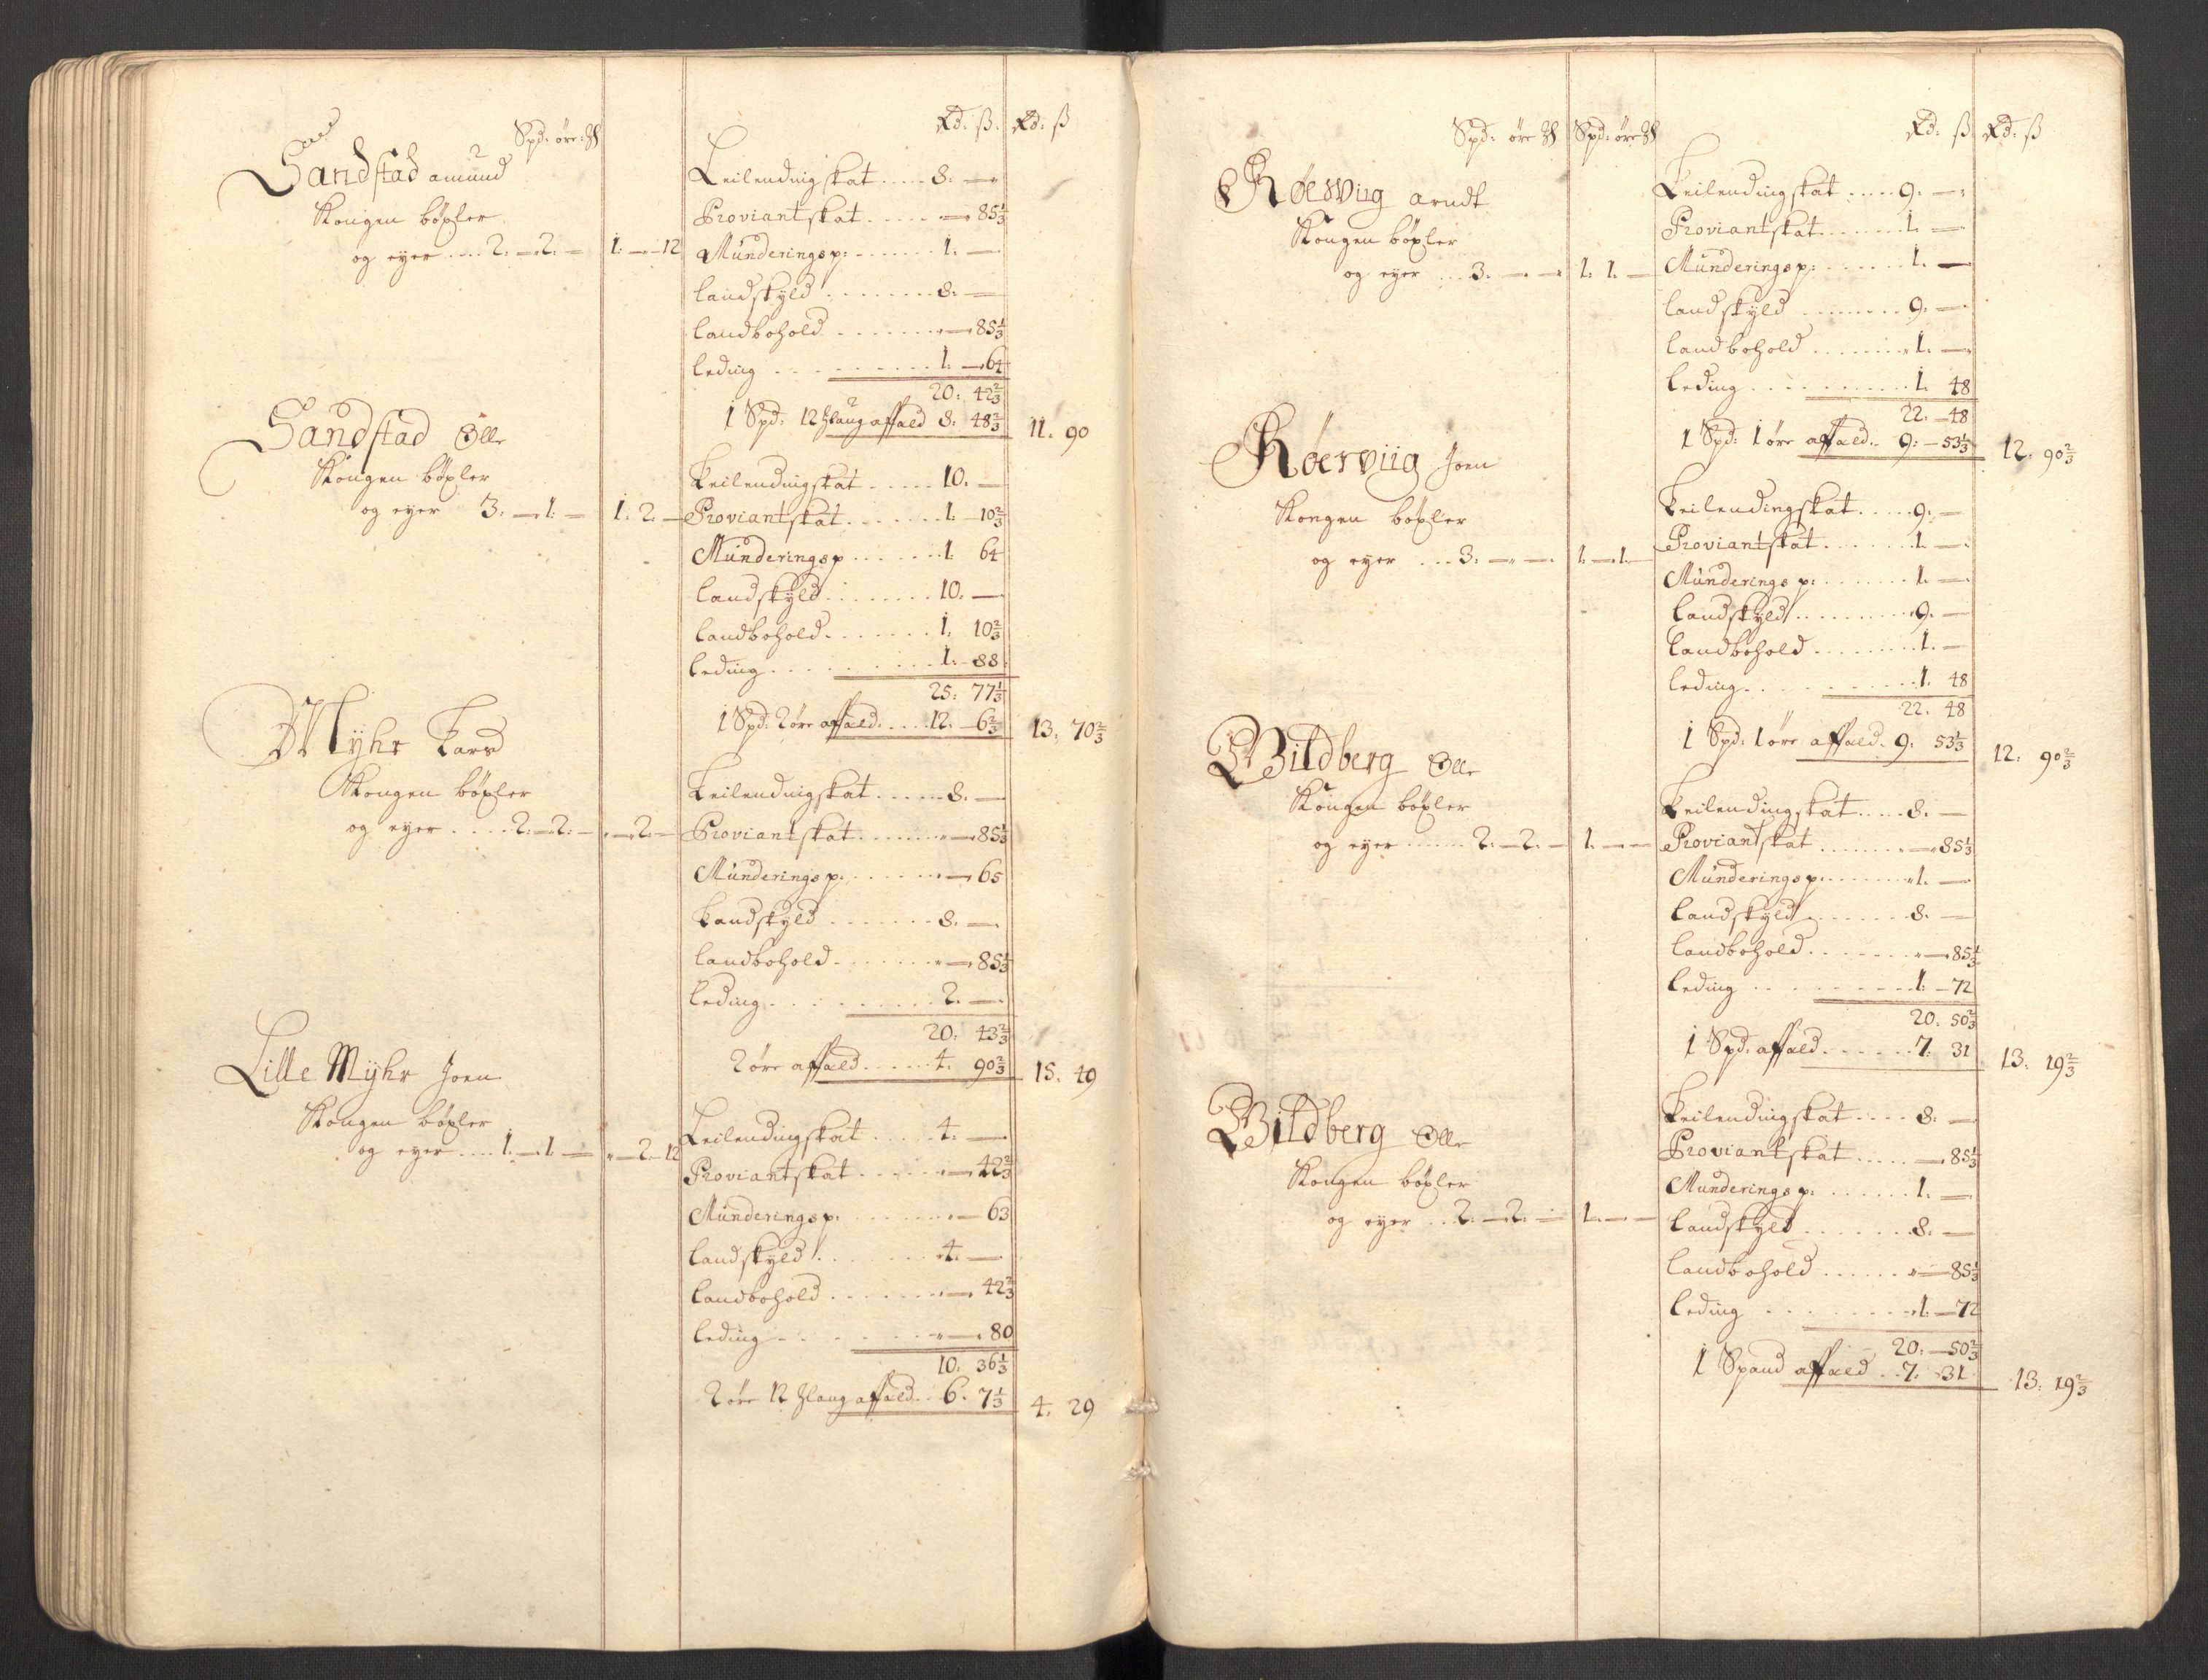 Spd: øre: ℔
Rd: ß. Rd: ß
Sandstad amund
Kongen bøxler
og eyer .... 2. — 2. — 1. — 12
Leilendingskat .... 8. —
Proviantskat ..... — 85⅓
Munderingsp: ...... 1. —
landskyld ....... 8. —
landbohold ....... — 85⅓
leding ......... 1. — 64
20: 42⅔
1 Spd: 12 affald 8. 48⅔ 11. 90
Sandstad Olle
Kongen bøxler
og eyer 3. — 1. — 1. 2. —
Leilendingskat ..... 10. —
Proviantskat ...... 1. — 10⅔
Munderingsp ...... 1. 64
landskyld ....... 10. —
landbohold ...... 1. 10⅔
leding ......... 1. — 88
25. 77⅓
1 Spd: 2 øre affald .... 12. — 6⅔ 13. 70⅔
Myhr Lars
Kongen bøxler
og eyer .... 2. — 2. — — 2. —
Leilendingskat ..... 8. —
Proviantskat ...... — 85⅓
Munderingsp. ...... — 65
Landskyld ....... 8. —
landbohold ...... — 85⅓
leding ......... 2. —
20. 43⅔
2 øre affald ..... 4. 90⅔ 15. 49
Lille Myhr Joen
Kongen bøxler
og eyer .... 1. — 1. — — 2. — 12
Leilendingskat .... 4. —
Proviantskat ..... — 42⅔
Munderingsp. ...... — 63
landskyld ...... 4. —
landbohold ...... — 42⅔
leding ....... — 80
10. 36⅓
2 øre 12 affald .. 6. 7⅓ 4. 29
Spd: øre ℔ Spd: øre ℔
Rd: ß Rd: ß
Røesviig arndt
Kongen bøxler
og eyer ... 3. — — 1. 1. —
Leilendingskat .... 9. —
Proviantskat ...... 1. —
Munderingsp: ...... 1. —
landskyld ....... 9. —
landbohold ....... 1. —
leding ......... 1. 48
22. — 48
1 Spd: 1 øre affald .. 9: — 53⅓ 12. 90⅔
Røersviig Joen
Kongen bøxler
og eyer ... 3. — — 1. — 1. —
Leilendingskat .... 9. —
Proviantskat ...... 1. —
Munderings p: ...... 1. —
landskyld ........ 9. —
landbohold ....... 1. —
leding ......... 1. 48
22. 48
1 Spd: 1 øre affald . 9. 53⅓ 12. 90⅔
Bildberg Olle
Kongen bøxler
og eyer ..... 2. — 2. — 1. — —
Leilendingskat .... 8. —
Proviantskat ...... — 85⅓
Munderingsp: ...... 1. —
landskyld ....... 8. —
landbohold ...... — 85⅓
leding ......... 1. — 72
20. 50⅔
1 Spd: affald ...... 7. 31 13. 19⅔
Bildberg Olle
Kongen bøxler
og eyer ... 2. — 2. — 1. — —
Leilendingskat .... 8. —
Proviantskat ..... — 85⅓
Munderingsp: ...... 1. —
landskyld ...... 8. —
landbohold ...... — 85⅓
leding ........ 1. — 72
20. — 50⅔
1 Spand affald .. 7. 31 13. 19⅔